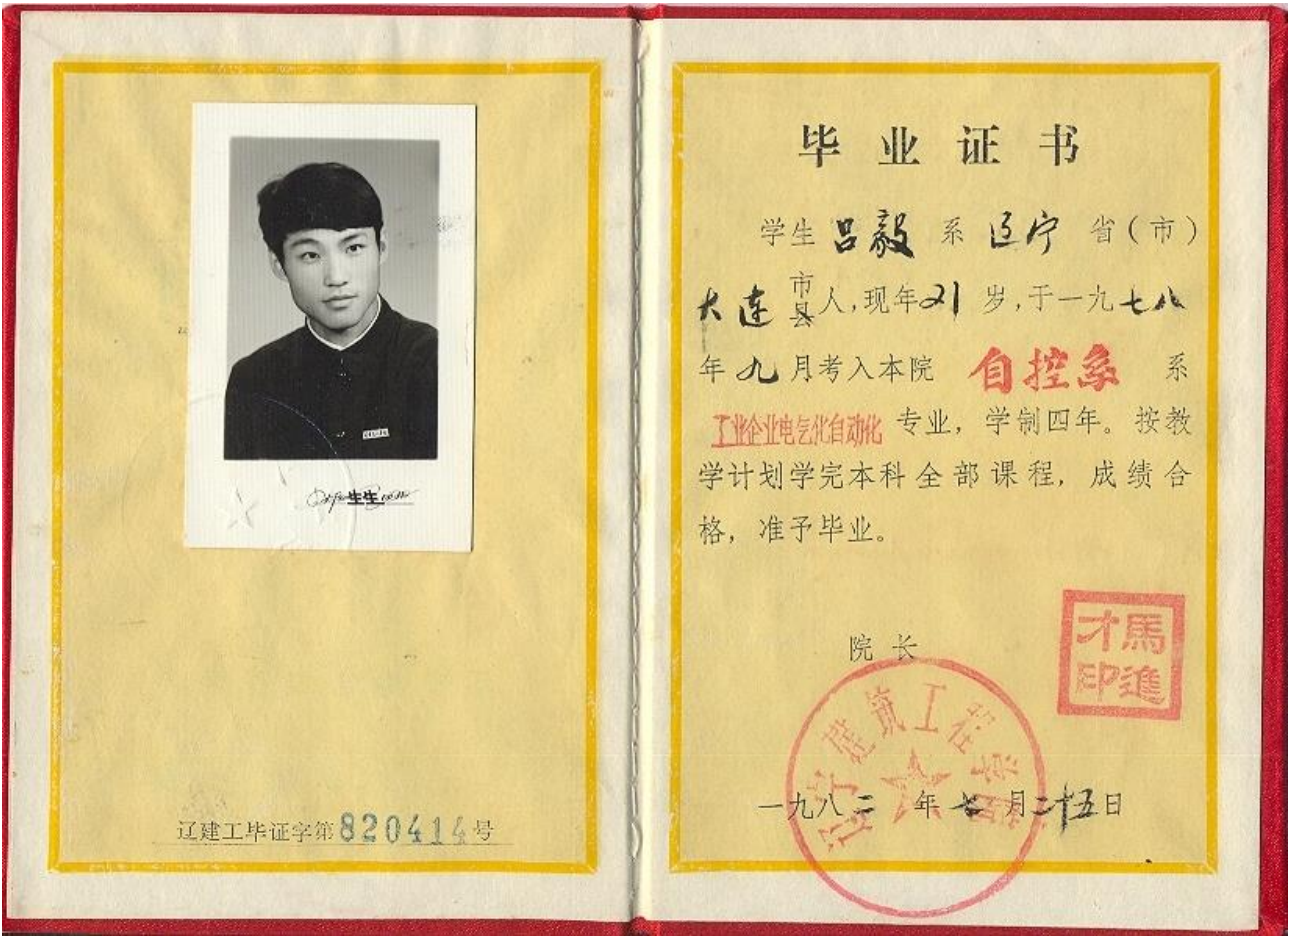 生生
辽建工毕证字第820414号
毕业证书
学生 吕毅 系 辽宁 省(市)
大连 市县 人,现年21岁,于一九七八
年九月考入本院 自控系 系
工业企业电气化自动化 专业,学制四年。按教
学计划学完本科全部课程,成绩合
格,准予毕业。
院长
馬進才印
辽宁建筑工程学院
一九八二年七月二十五日